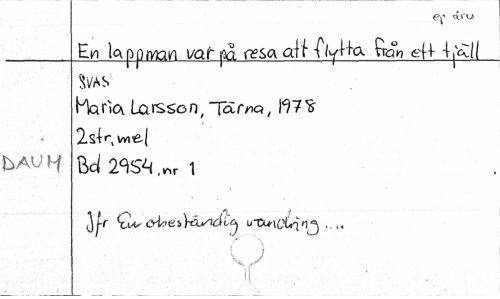 ej arv
En lappman var på resa att flytta från ett tjäll
SVAS
Maria Larsson, Tärna, 1978
2str, mel
DAUM Bd 2954, nr 1
Jfr En obeständig vandring ...